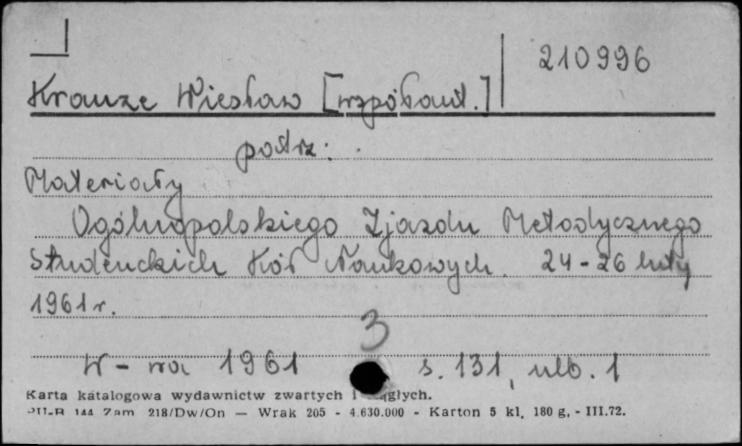 210996
Krauze Wiesław [współaut.]
patrz:
Materiały
Ogólnopolskiego Zjazdu Metodycznego
Studenckich Kół Naukowych. 24-26 luty
1961 r.
3
W-wa 1961 s. 131, nlb. 1
Karta katalogowa wydawnictw zwartych i
144 Zam 218/Dw/On — Wrak 205 - 4.630.000 - Karton 5 kl. 180 g. - III.72.